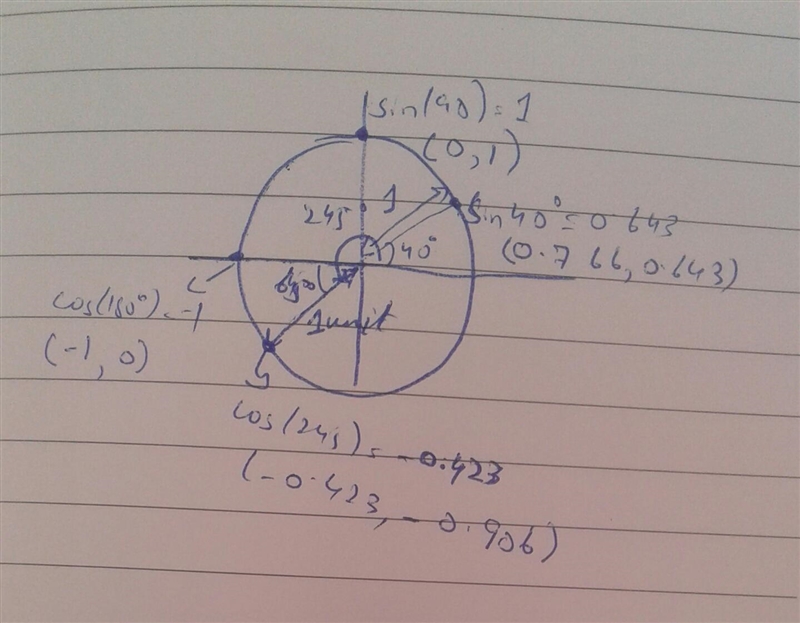 sin(90) = 1
(0,1)
245
1
40°
sin 40° = 0.643
(0.766, 0.643)
cos(180°) = -1
(-1, 0)
1unit
cos(245) = -0.423
(-0.423, -0.906)